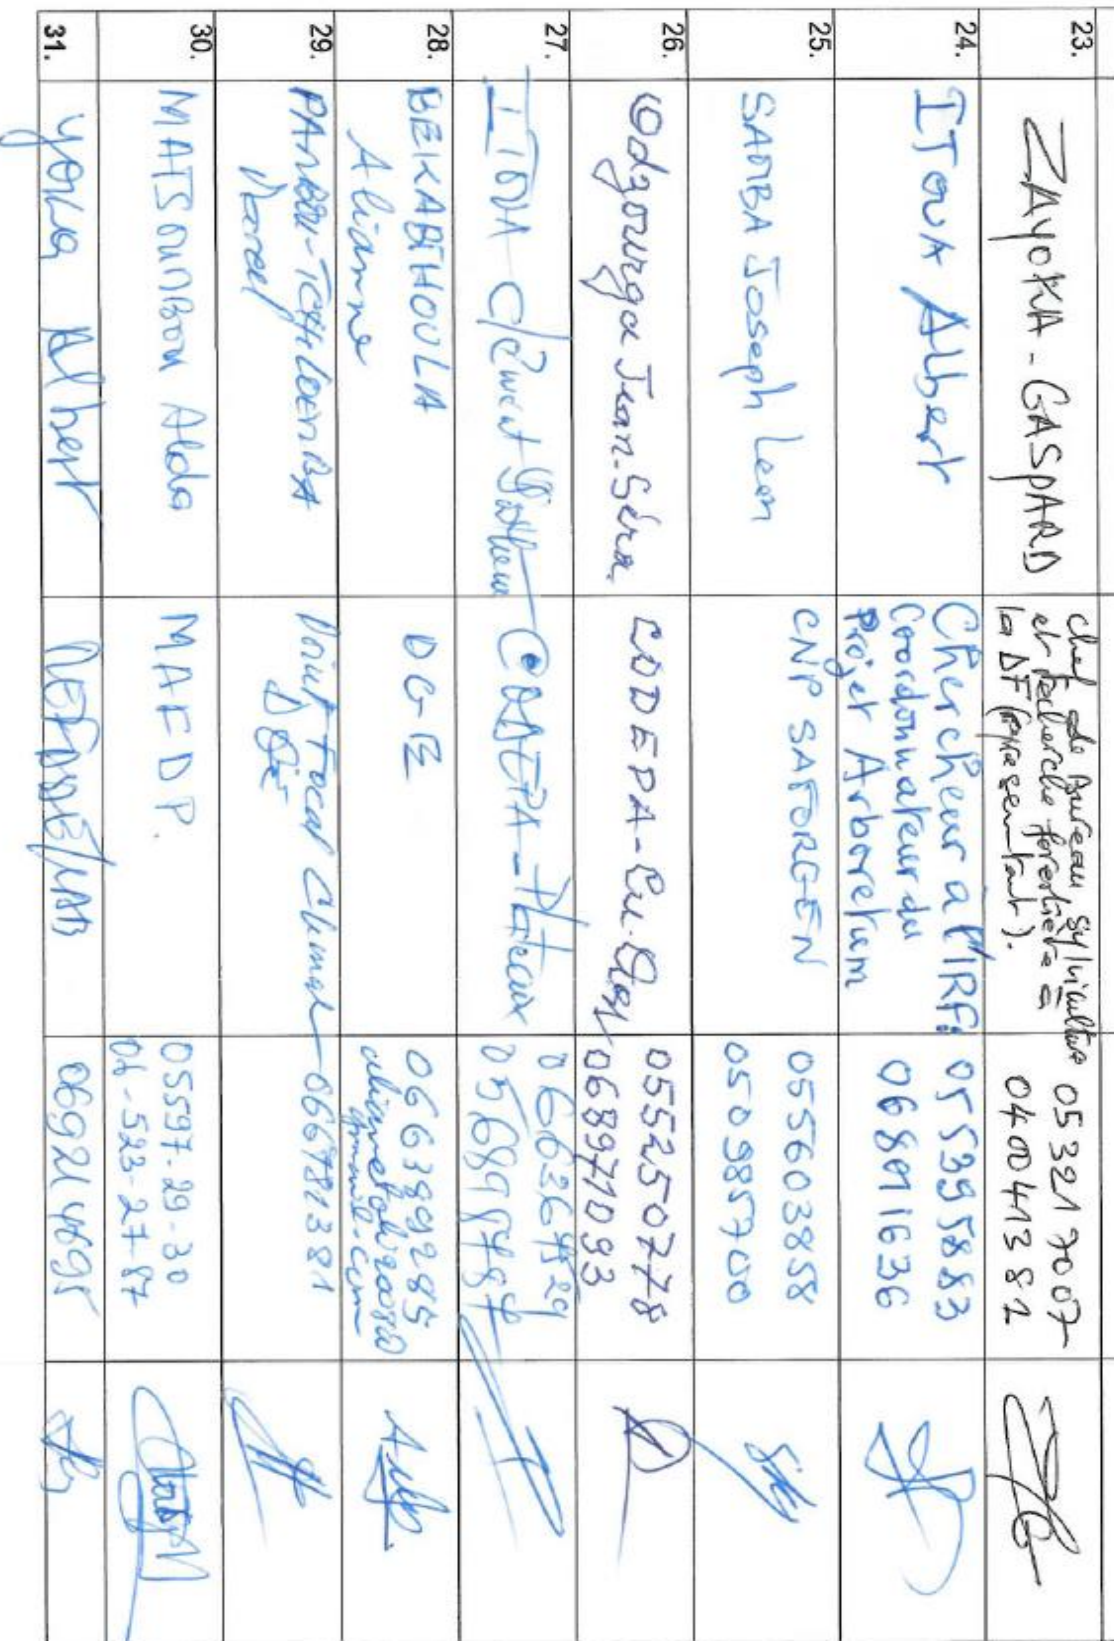 23.
ZAYOKA - GASPARD
chef de Bureau sylviculture
et recherche forestière à
la DF (représentant).
05 321 70 07
04 004 13 82
24.
ITOUA Albert
Chercheur à l'IRF
Coordonnateur du
Projet Arboretum
05 539 58 83
06 891 16 36
25.
SAMBA Joseph Leon
CNP SAFORGEN
055603858
050985700
26.
Odzounga Jean-Séra.
CODEPA-Cu-
055250778
068971093
27.
ITOUA Clément
CODEPA-Plateaux
28.
BEKABIHOULA
Alianne
DGE
066389285
29.
PAMBOU-TCHILOEMBA
Marcel
Point Focal Climat
066781381
30.
MATSOUMBOU Alda
MAEDP.
05597-29-30
06-523-27-87
31.
Albert
069214695